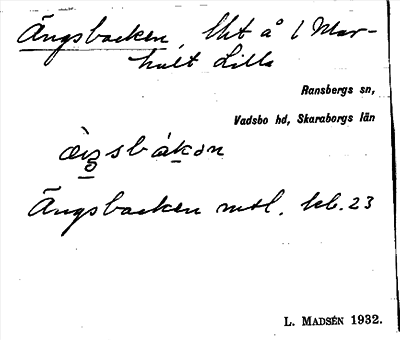 Ängsbacken, lht å 1 Mar-
hult Lilla
Ransbergs sn,
Vadsbo hd, Skaraborgs län
Ängsbacken mtl. kb. 23
L. Madsén 1932.